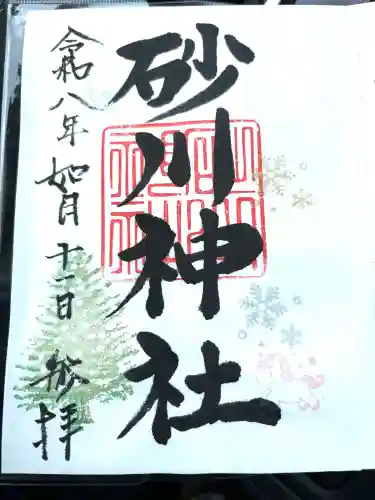 砂川神社
令和八年 如月十一日 参拝